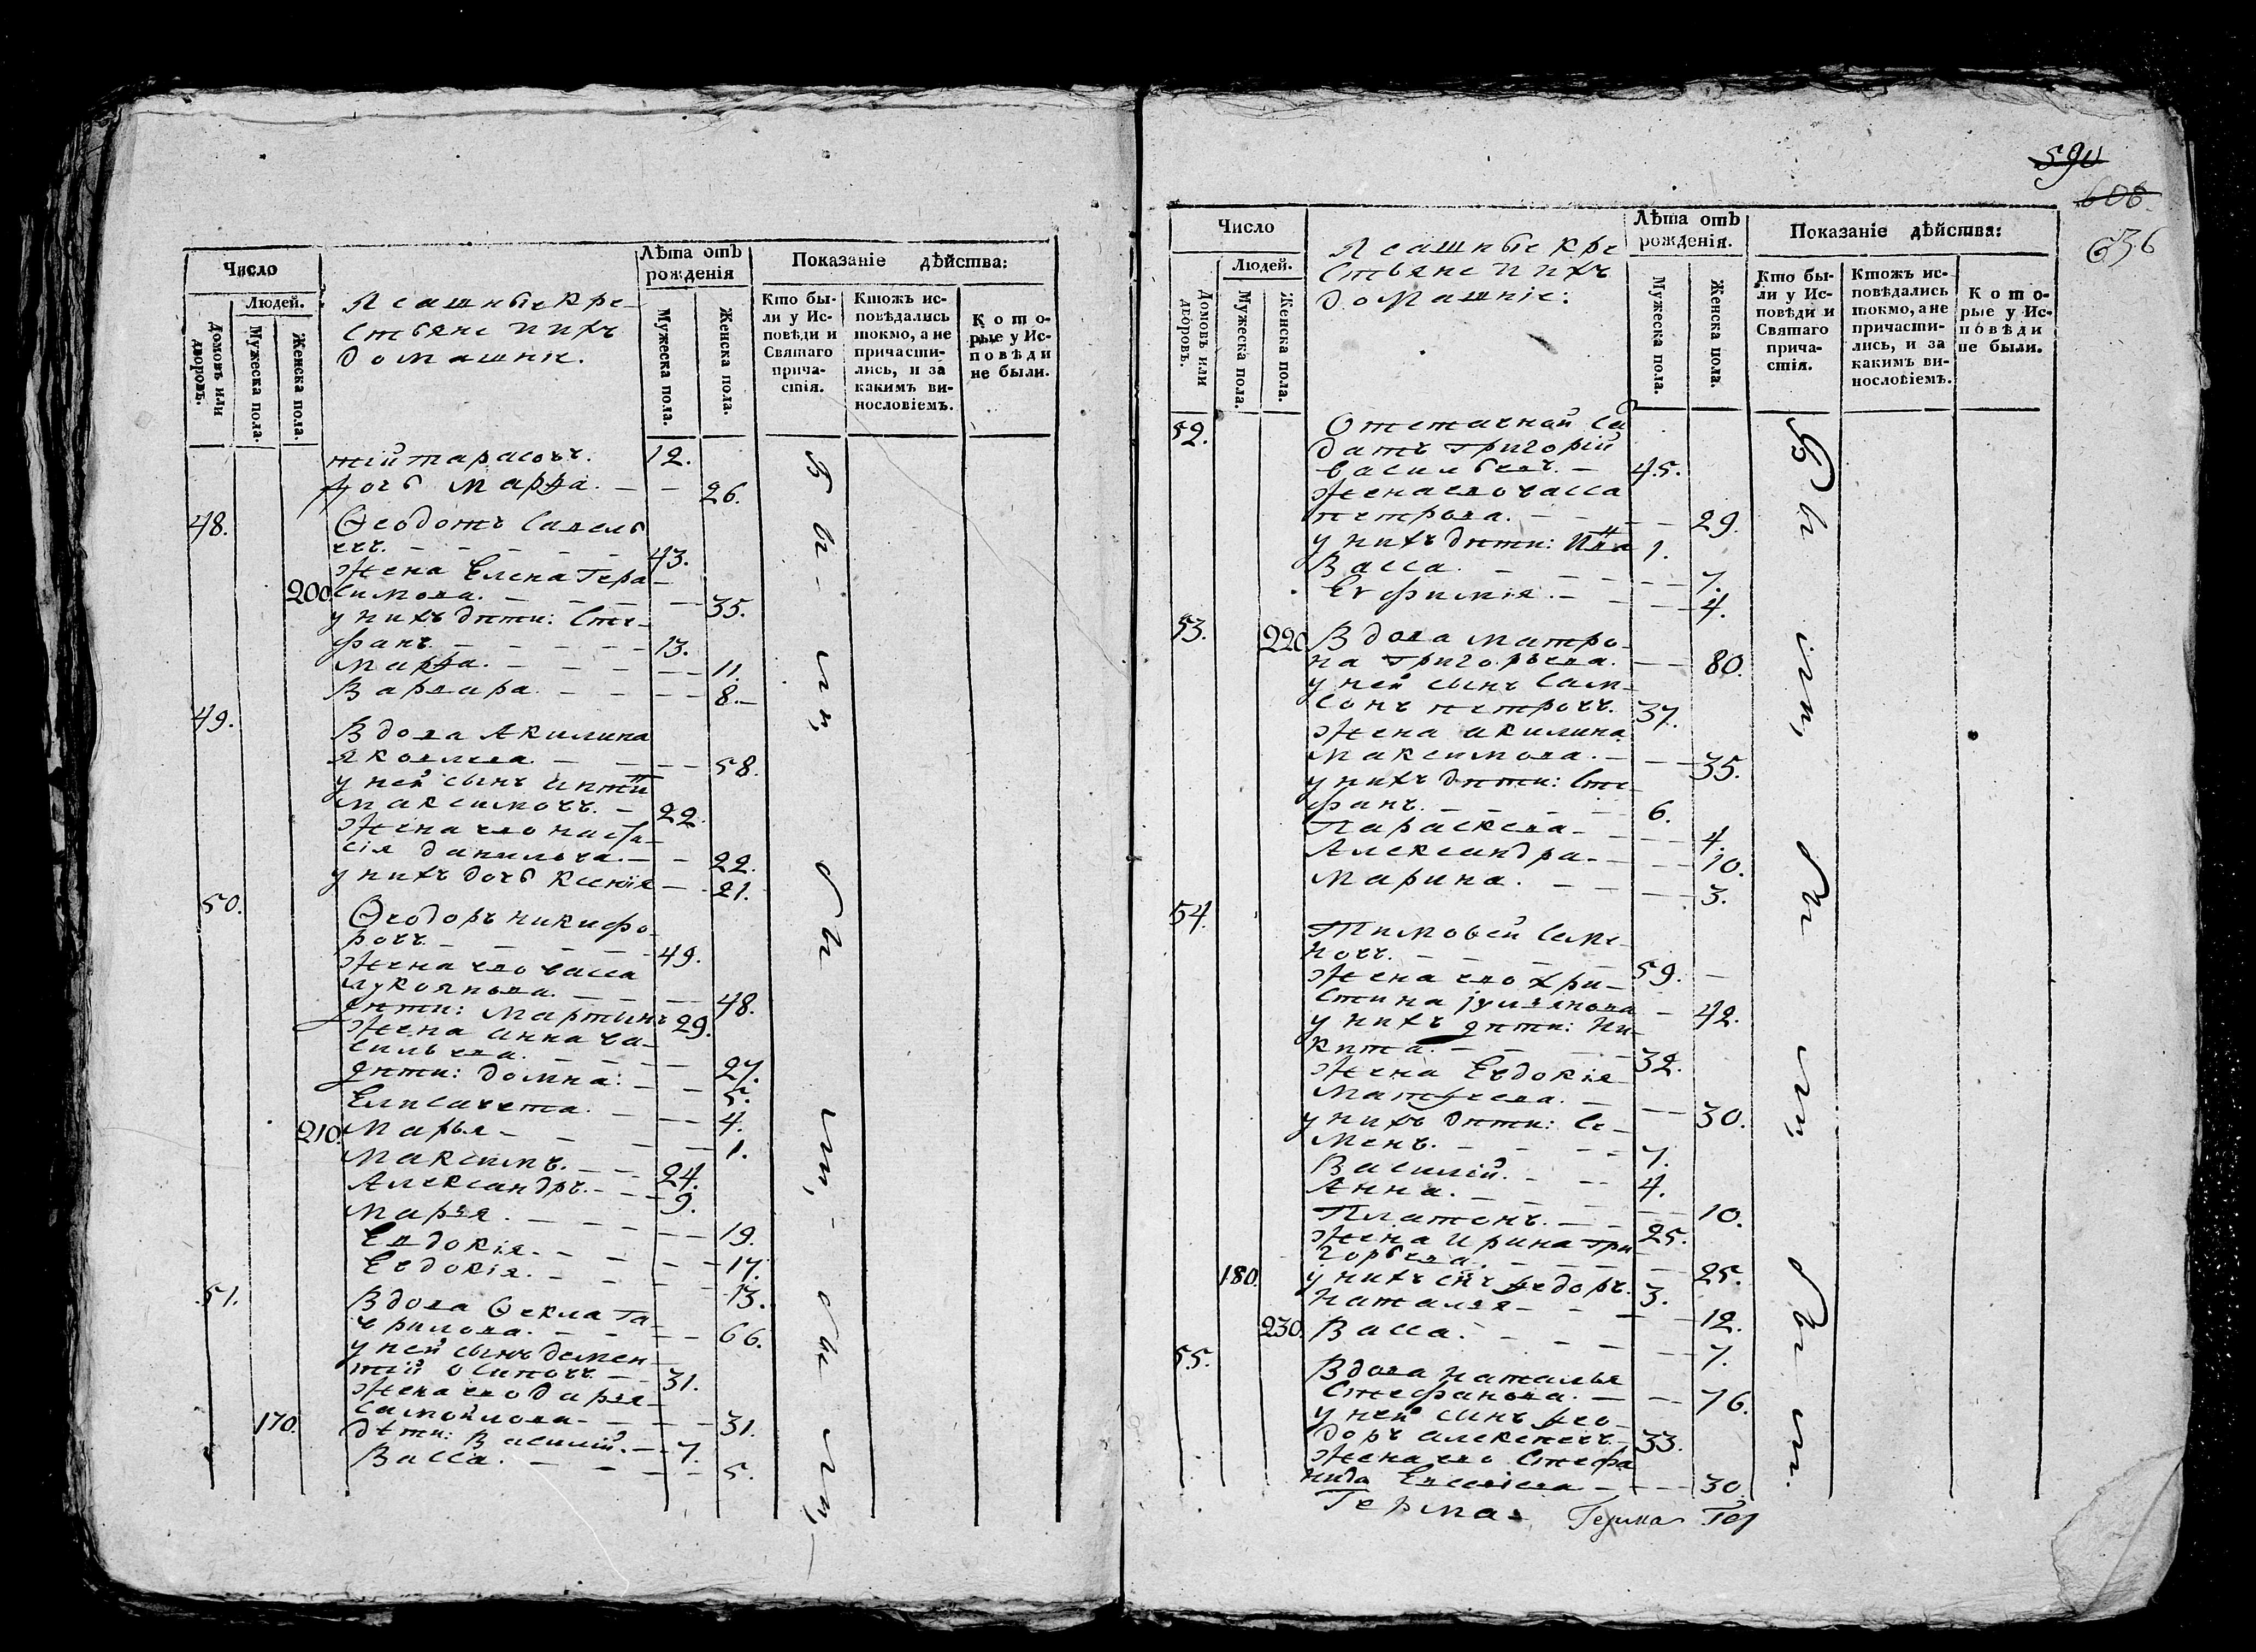 Число
Людей.
Домовъ или дворовъ.
Мужеска пола.
Женска пола.
Ясашные кре-
стьяне и ихъ
домашніе.
Лѣта отъ рожденія
Мужеска пола.
Женска пола.
Показаніе дѣйства:
Кто бы-
ли у Ис-
повѣди и
Святаго
прича-
стія.
Ктожъ ис-
повѣдались
токмо, а не
причасти-
лись, и за
какимъ ви-
нословіемъ.
Кото-
рые у Ис-
повѣди
не были.
тій тарасовъ. 12.
дочь Марѳа. — — 26.
48. Ѳеодотъ Савель
евъ. — — — 43.
Жена Елена Гера-
200. симова. — — — 35.
у нихъ дѣти: Сте-
фанъ. — — — 13.
Марѳа. — — — 11.
Варвара. — — — 8.
49. Вдова Акилина
яковлева. — — — 58.
у ней сынъ
Максимовъ. — 22.
Жена его наста-
сія данилова. — — 22.
у нихъ дочь Ксенія — 21.
50. Ѳеодоръ никифо-
ровъ. — — — 49.
Жена его васса
лукоянова. — — — 48.
дѣти: Мартынъ 29.
Жена анна ва-
сильева. — — — 27.
дѣти: домна. — — 5.
Елисавета. — — — 4.
210. Марья — — — 1.
Максимъ. — — 24.
Александръ. — — 9.
Марья. — — — 19.
Евдокія. — — — 17.
Евдокія. — — — 13.
51. Вдова Ѳекла га-
врилова. — — — 66.
у ней сынъ демен-
тій осиповъ. — 31.
Жена его дарья
самойлова — — — 31.
170. дѣти: Василій. — 7.
Васса. — — — 5.
Число
Людей.
Домовъ или дворовъ.
Мужеска пола.
Женска пола.
Ясашные кре
стьяне и ихъ
домашніе:
Лѣта отъ рожденія.
Мужеска пола.
Женска пола.
Показаніе дѣйства:
Кто бы-
ли у Ис-
повѣди и
Святаго
прича-
стія.
Ктожъ ис-
повѣдались
токмо, а не
причасти-
лись, и за
какимъ ви-
нословіемъ.
Кото-
рые у Ис-
повѣди
не были.
590
608.
636
52. Отставной Сл
датъ григорій
васильевъ. — 45.
Жена его васса
петрова. — — — 29.
у нихъ дѣти: 1.
Васса. — — — 7.
Евфимія. — — — 4.
53. 220. Вдова матро-
на григорьева. — — 80.
у ней сынъ сам-
сонъ петровъ. 37.
Жена акилина
Максимова. — — — 35.
у нихъ дѣти: Сте-
фанъ. — — — 6.
Параскева — — — 4.
Александра. — — — 10.
Марина. — — — 3.
54. Тимоѳей Семе-
новъ. — — — 59.
Жена его Хри-
стина — 42.
у нихъ дѣти: Ни-
кита. — — — 32.
Жена Евдокія
Матѳеева. — — — 30.
у нихъ дѣти: Се-
менъ. — — — 7.
Василій. — — 4.
Анна. — — — 10.
Платонъ. — — 25.
Жена Ирина гри-
горьева. — — — 25.
180. у нихъ сынъ ѳедоръ. 3.
наталья — — — 12.
230. Васса. — — — 7.
55. Вдова Наталья
Стефанова. — — — 76.
у ней сынъ ѳео-
доръ алексеевъ. 33.
Жена его Стефа
нида — — — 30.
Герма- Герма Гер